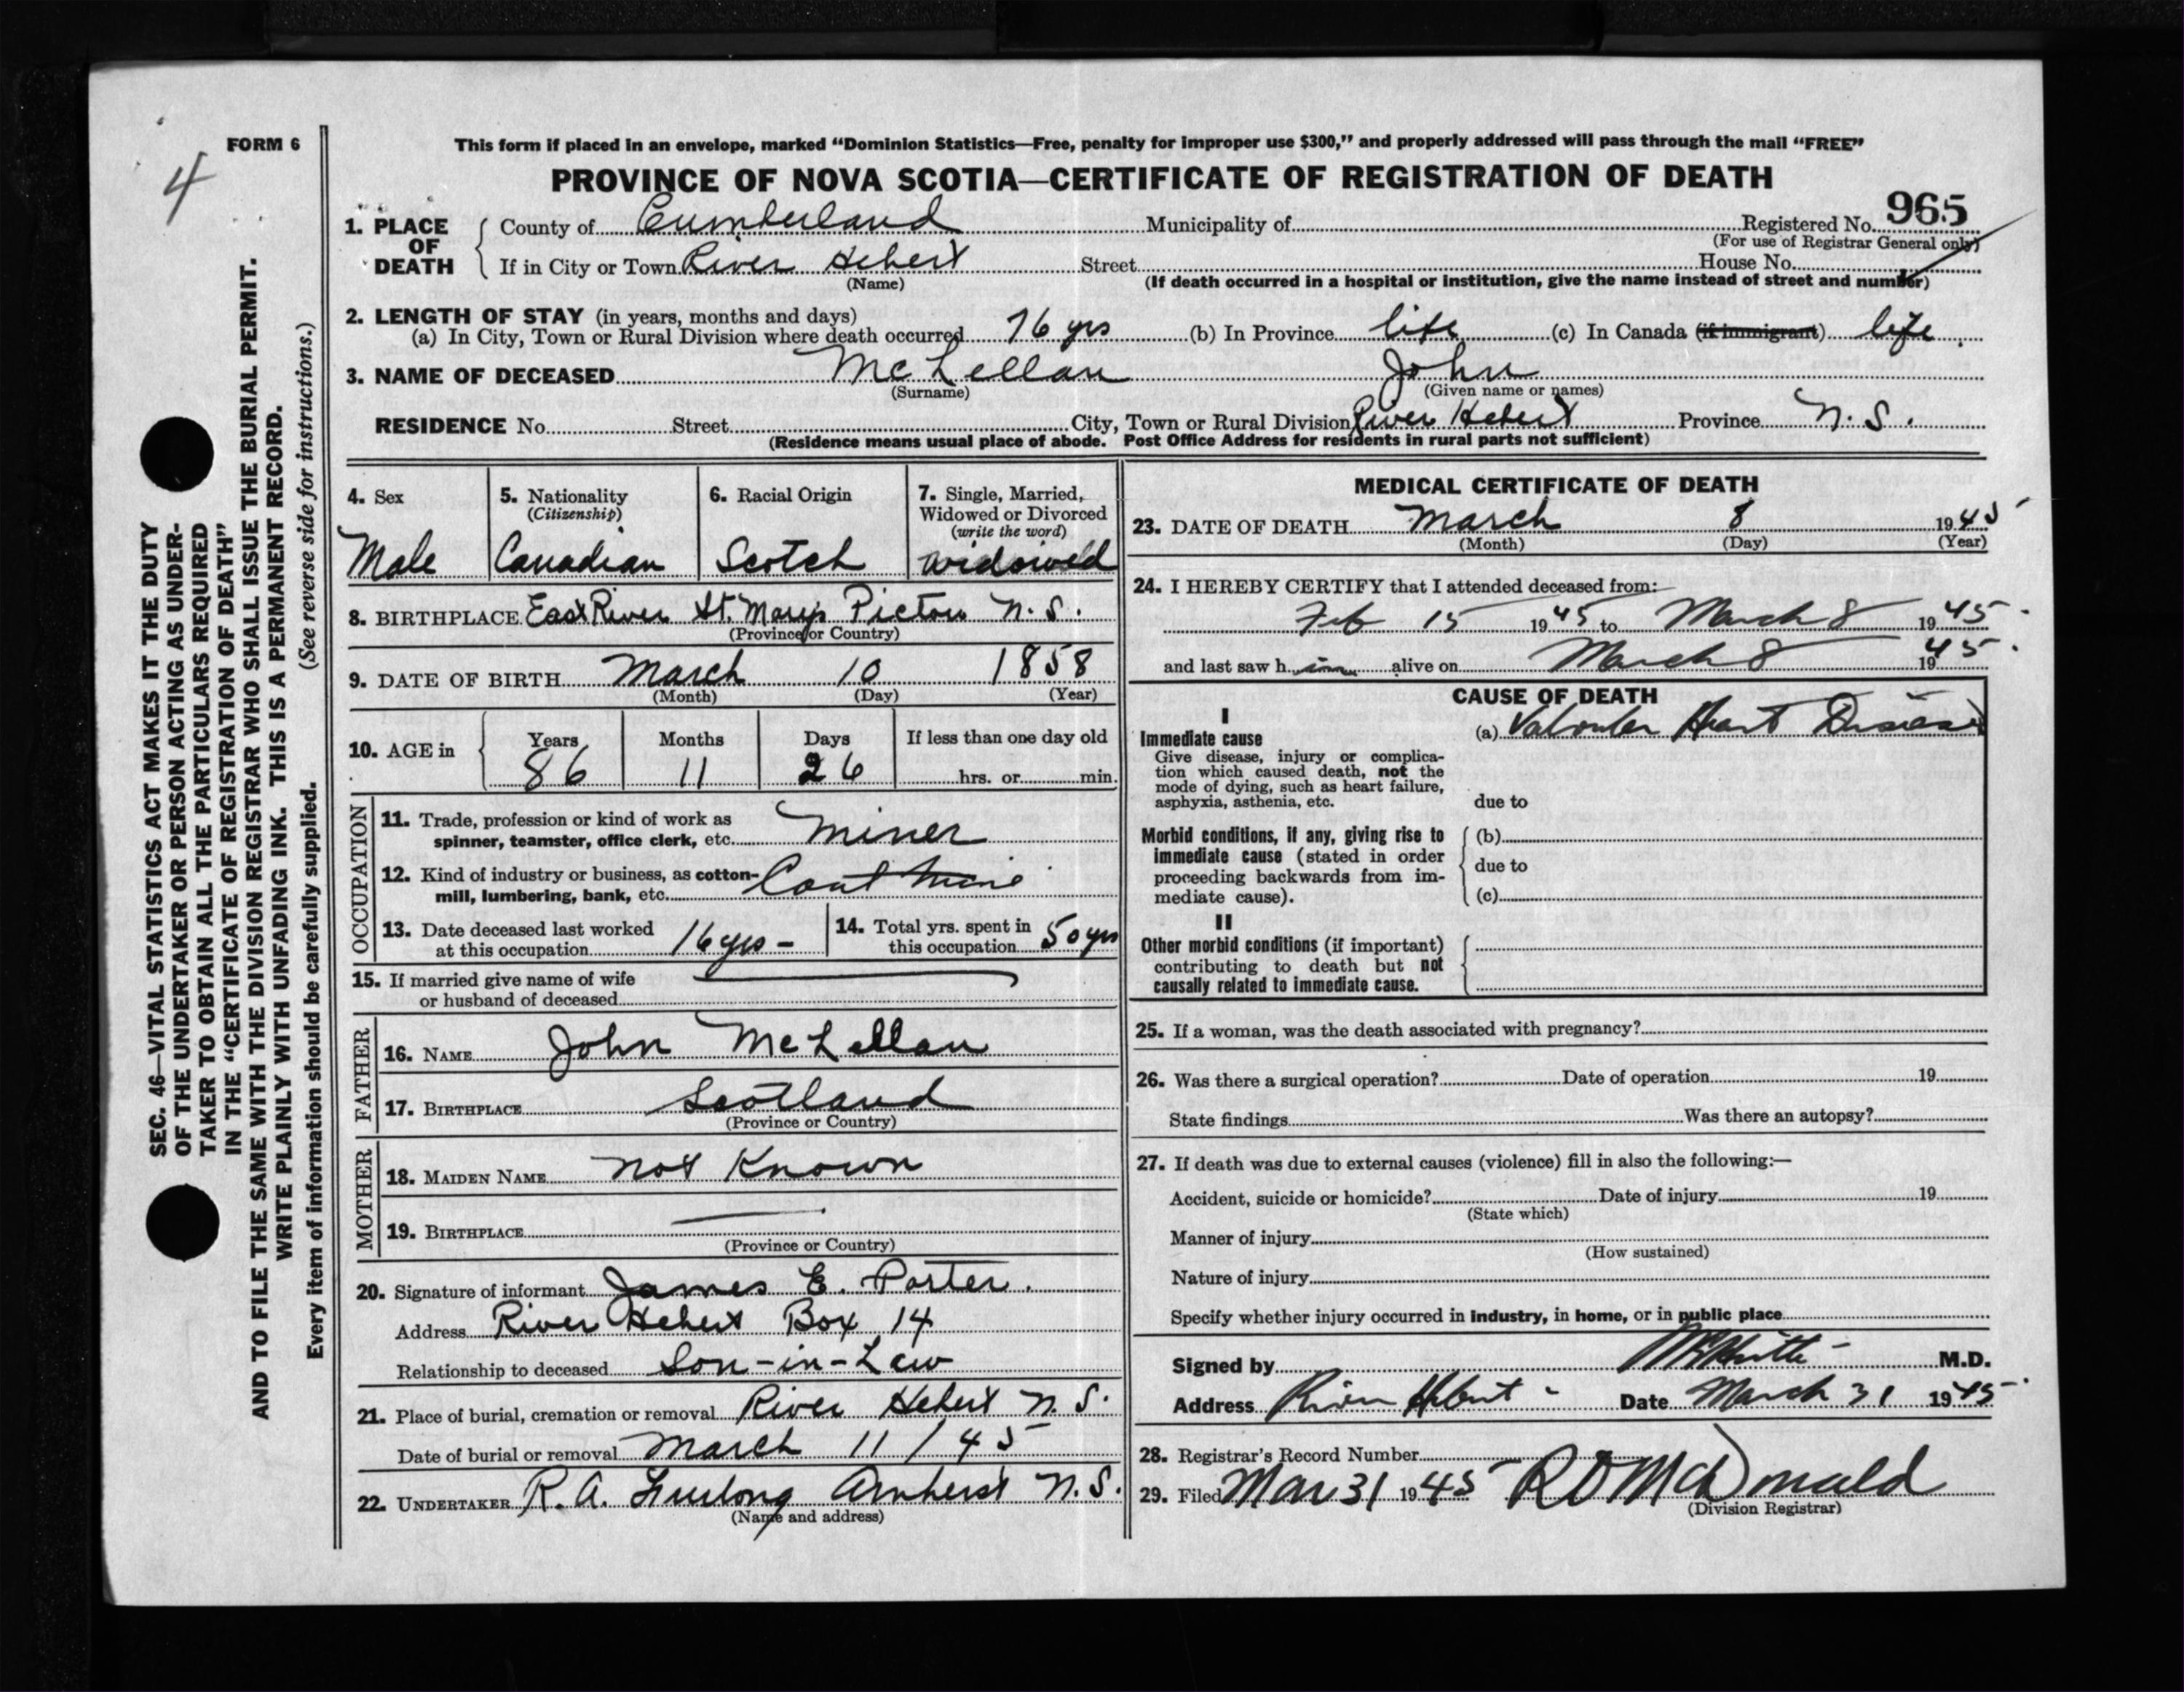 FORM 6
4
This form if placed in an envelope, marked “Dominion Statistics—Free, penalty for improper use $300,” and properly addressed will pass through the mail “FREE”
PROVINCE OF NOVA SCOTIA—CERTIFICATE OF REGISTRATION OF DEATH
965
1. PLACE OF DEATH
County of Cumberland Municipality of Registered No.
(For use of Registrar General only)
If in City or Town River Hebert Street House No.
(Name) (If death occurred in a hospital or institution, give the name instead of street and number)
2. LENGTH OF STAY (in years, months and days)
(a) In City, Town or Rural Division where death occurred 76 yrs (b) In Province life (c) In Canada (if immigrant) life
3. NAME OF DECEASED McLellan John
(Surname) (Given name or names)
RESIDENCE No. Street City, Town or Rural Division River Hebert Province N.S.
(Residence means usual place of abode. Post Office Address for residents in rural parts not sufficient)
4. Sex
Male
5. Nationality
(Citizenship)
Canadian
6. Racial Origin
Scotch
7. Single, Married,
Widowed or Divorced
(write the word)
8. BIRTHPLACE East River St. Marys Pictou N.S.
(Province or Country)
9. DATE OF BIRTH March 10 1858
(Month) (Day) (Year)
10. AGE in Years Months Days If less than one day old
86 11 26 hrs. or min.
OCCUPATION
11. Trade, profession or kind of work as
spinner, teamster, office clerk, etc. Miner
12. Kind of industry or business, as cotton-
mill, lumbering, bank, etc. Coal Mine
13. Date deceased last worked
at this occupation 16 yrs –
14. Total yrs. spent in
this occupation 50 yrs
15. If married give name of wife
or husband of deceased
FATHER
16. NAME John McLellan
17. BIRTHPLACE Scotland
(Province or Country)
MOTHER
18. MAIDEN NAME not Known
19. BIRTHPLACE
(Province or Country)
20. Signature of informant James E. Porter.
Address River Hebert Box 14
Relationship to deceased Son-in-Law
21. Place of burial, cremation or removal River Hebert N.S.
Date of burial or removal March 11/45
22. UNDERTAKER R.A. Furlong Amherst N.S.
(Name and address)
MEDICAL CERTIFICATE OF DEATH
23. DATE OF DEATH March 8 1945
(Month) (Day) (Year)
24. I HEREBY CERTIFY that I attended deceased from:
Feb 15 1945 to March 8 1945
and last saw h im alive on March 8 1945
CAUSE OF DEATH
I
Immediate cause
Give disease, injury or complica-
tion which caused death, not the
mode of dying, such as heart failure,
asphyxia, asthenia, etc.
(a) Heart Disease
due to
Morbid conditions, if any, giving rise to
immediate cause (stated in order
proceeding backwards from im-
mediate cause).
(b)
due to
(c)
II
Other morbid conditions (if important)
contributing to death but not
causally related to immediate cause.
25. If a woman, was the death associated with pregnancy?
26. Was there a surgical operation? Date of operation 19
State findings Was there an autopsy?
27. If death was due to external causes (violence) fill in also the following:—
Accident, suicide or homicide? Date of injury 19
(State which)
Manner of injury
(How sustained)
Nature of injury
Specify whether injury occurred in industry, in home, or in public place
Signed by M.D.
Address River Hebert Date March 31 1945
28. Registrar's Record Number
29. Filed Mar 31 1945 R D McDonald
(Division Registrar)
SEC. 46—VITAL STATISTICS ACT MAKES IT THE DUTY
OF THE UNDERTAKER OR PERSON ACTING AS UNDER-
TAKER TO OBTAIN ALL THE PARTICULARS REQUIRED
IN THE “CERTIFICATE OF REGISTRATION OF DEATH”
AND TO FILE THE SAME WITH THE DIVISION REGISTRAR WHO SHALL ISSUE THE BURIAL PERMIT.
WRITE PLAINLY WITH UNFADING INK. THIS IS A PERMANENT RECORD.
Every item of information should be carefully supplied. (See reverse side for instructions.)